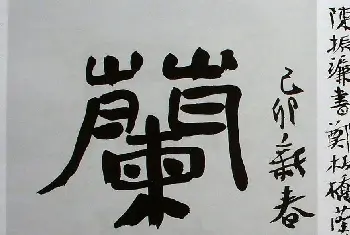 陳振濂書鄭板橋
己卯新春
蘭